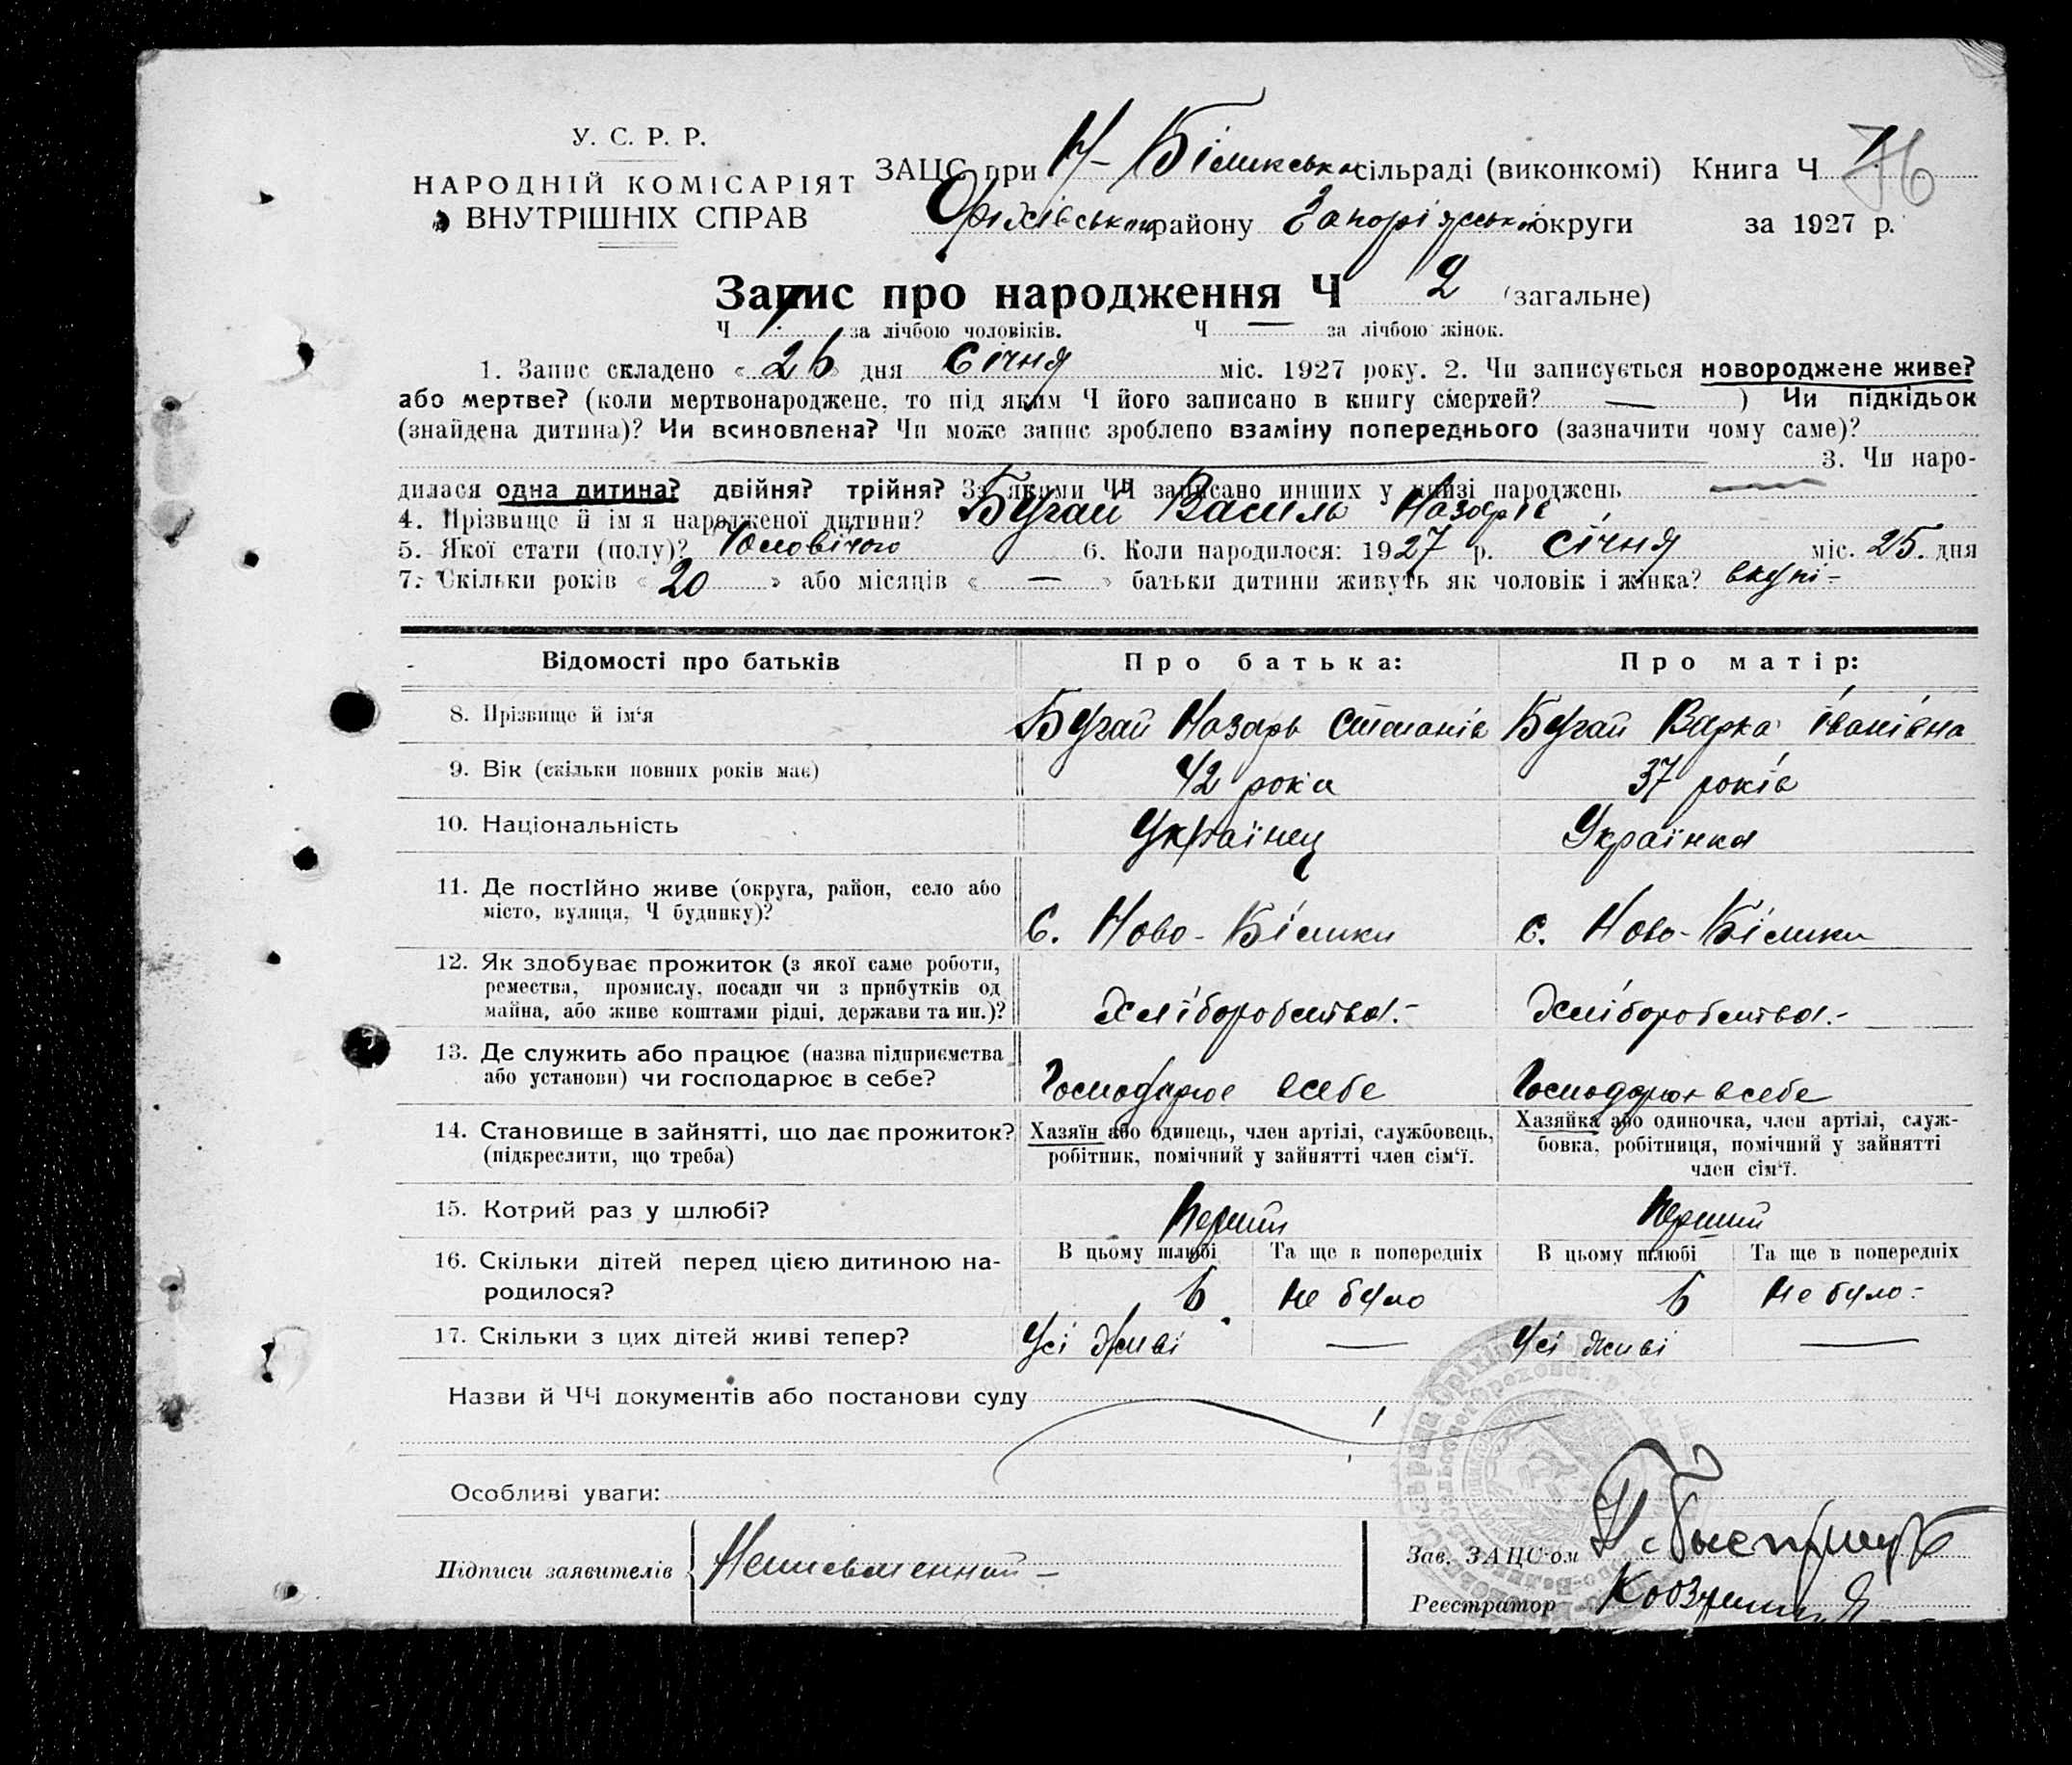 У. С. Р. Р.
НАРОДНІЙ КОМІСАРІЯТ
ВНУТРІШНІХ СПРАВ
ЗАЦС при Н-Біликській сільраді (виконкомі) Книга Ч 1. 76
Оріхівського району Запоріжської округи за 1927 р.
Запис про народження Ч 2 (загальне)
Ч 1. за лічбою чоловіків. Ч — за лічбою жінок.
1. Запис складено « 26 » дня Січня міс. 1927 року. 2. Чи записується новороджене живе?
або мертве? (коли мертвонароджене, то під яким Ч його записано в книгу смертей? — ) Чи підкідьок
(знайдена дитина)? Чи всиновлена? Чи може запис зроблено взаміну попереднього (зазначити чому саме)?
3. Чи наро-
дилася одна дитина? двійня? трійня? За якими ЧЧ записано инших у книзі народжень —
4. Прізвище й імя народженої дитини? Бугай Василь Назарів
5. Якої стати (полу)? Чоловічого 6. Коли народилося: 1927 р. січня міс. 25. дня
7. Скільки років « 20 » або місяців « — » батьки дитини живуть як чоловік і жінка? вкупі -
Відомості про батьків Про батька: Про матір:
8. Прізвище й ім'я Бугай Назарь Степанів Бугай Варка Іванівна
9. Вік (скільки повних років має) 42 роки 37 років
10. Національність Українец Українка
11. Де постійно живе (округа, район, село або
місто, вулиця, Ч будинку)? С. Ново-Білики с. Ново-Білики
12. Як здобуває прожиток (з якої саме роботи,
ремества, промислу, посади чи з прибутків од
майна, або живе коштами рідні, держави та ин.)? Хліборобства.- Хліборобства.-
13. Де служить або працює (назва підприємства
або установи) чи господарює в себе? Господарює всебе Господарює всебе
14. Становище в зайнятті, що дає прожиток?
(підкреслити, що треба)
Хазяїн або одинець, член артілі, службовець,
робітник, помічний у зайнятті член сім'ї.
Хазяйка або одиночка, член артілі, служ-
бовка, робітниця, помічний у зайнятті
член сім'ї.
15. Котрий раз у шлюбі? Перший Перший
В цьому шлюбі Та ще в попередніх В цьому шлюбі Та ще в попередніх
16. Скільки дітей перед цією дитиною на-
родилося? 6 не було 6 не було -
17. Скільки з цих дітей живі тепер? Усі живі — Усі живі —
Назви й ЧЧ документів або постанови суду
Особливі уваги:
Підписи заявителів Неписьменний -
Зав. ЗАЦС-ом
Реєстратор